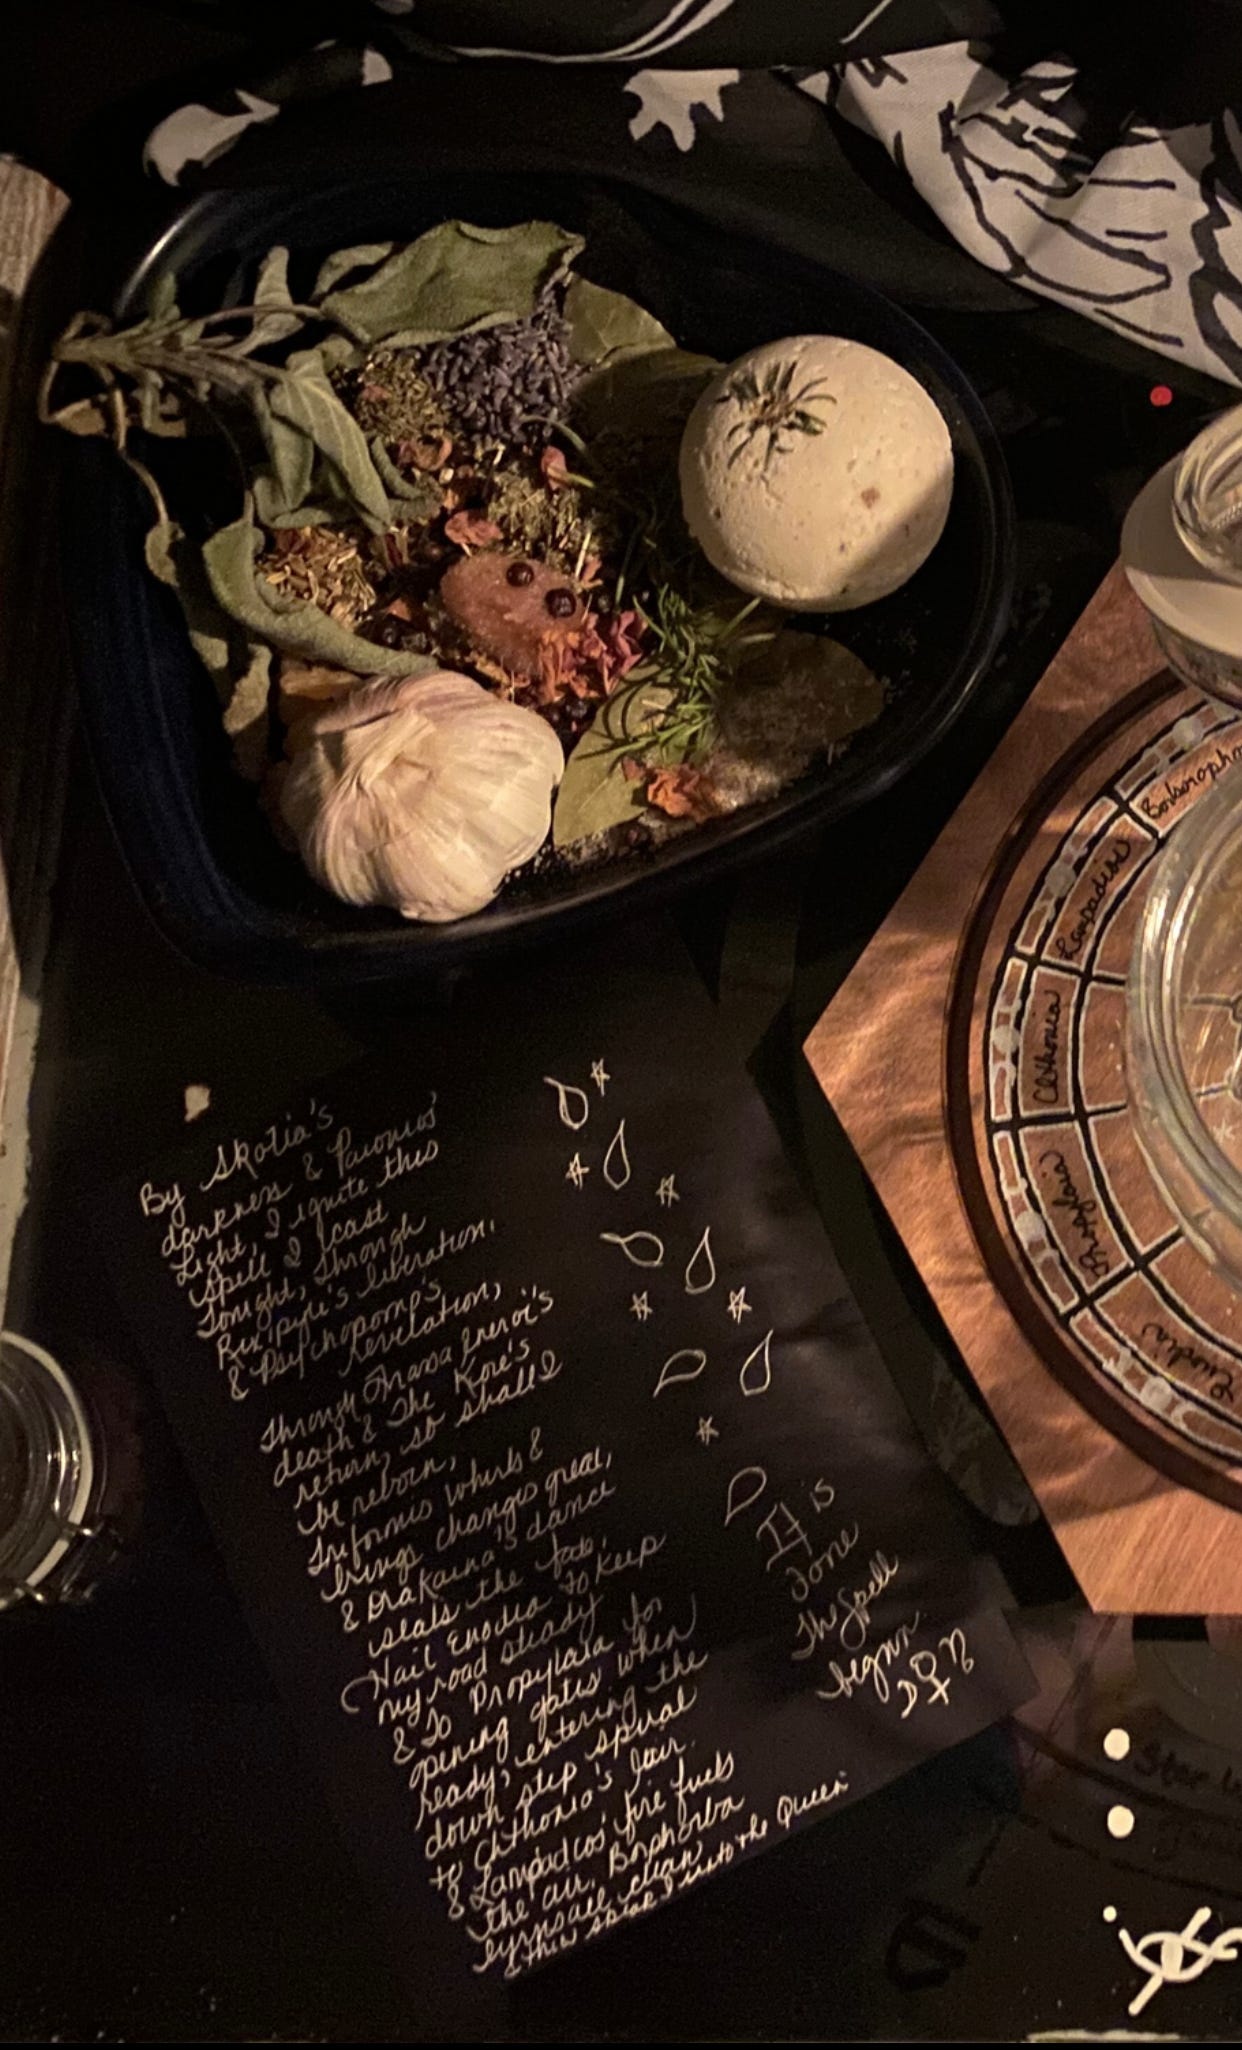 By Skotia's
darkness & Paionios'
Light, I ignite this
spell I cast
Tonight, through
Rixipyle's liberation,
& Psychopomp's
Revelation,
Through
death & The Kore's
return, so shall I
be reborn,
Triformis whirls &
brings changes great,
& Drakaina's dance
seals the fate.
Hail Enodia to keep
my road steady
& To Propylaia for
opening gates when
ready, entering the
down step spiral
to Chthonia's lair.
& Lampadios' fire fuels
the air, Borphorba
burns all clean
& this speak I unto the Queen
It is
done
The Spell
begun.
Borborophorba
Lampadios
Chthonia
Propylaia
Enodia
Star